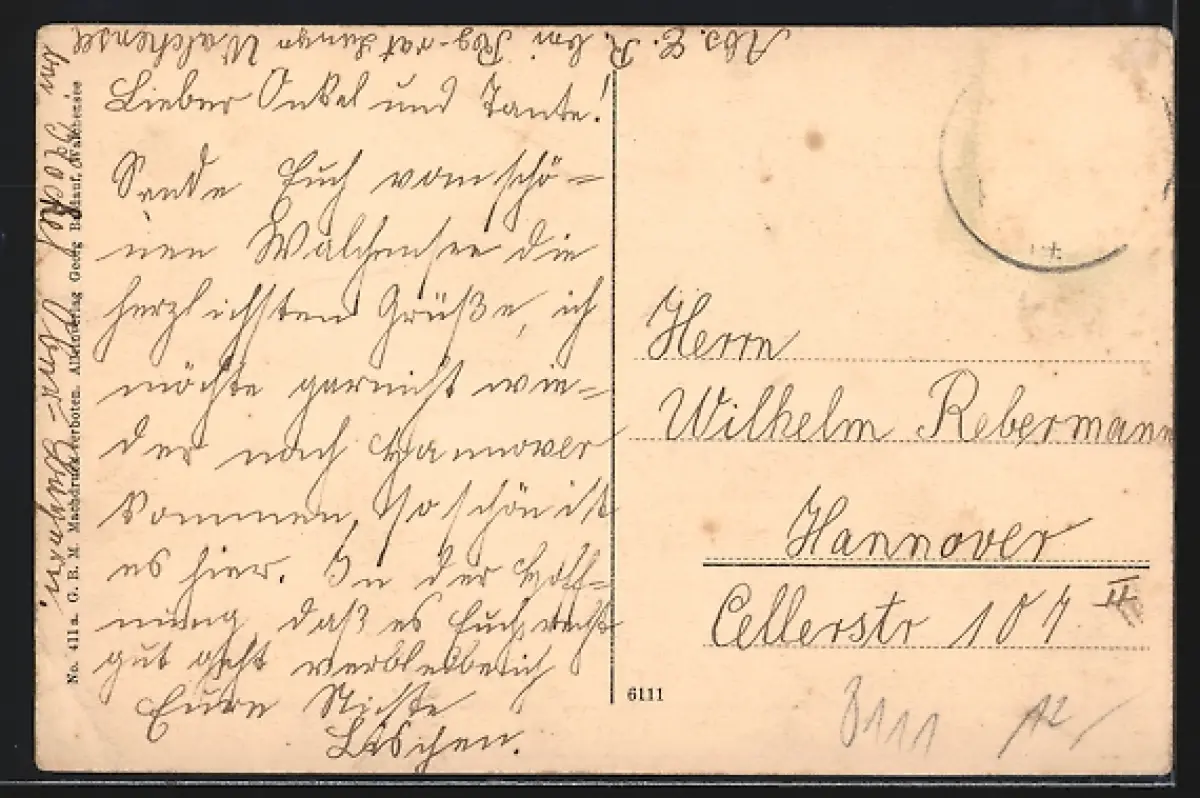 Abs. E. R. bei Reg-rat Walchensee
Lieber Onkel und Tante!
Sende Euch vom schö=
nen Walchensee die
herzlichsten Grüße, ich
möchte garnicht wie=
der nach Hannover
kommen, so schön ist
es hier. In der Hoff=
nung, daß es Euch recht
gut geht verbleibe ich
Eure Nichte
Lieschen.
No. 411a. G. B. M. Nachdruck verboten. Alleinverlag Georg Walchensee
Ober=Bayern
Herrn
Wilhelm Rebermann
Hannover
Cellerstr 107 II
6111
3111
12